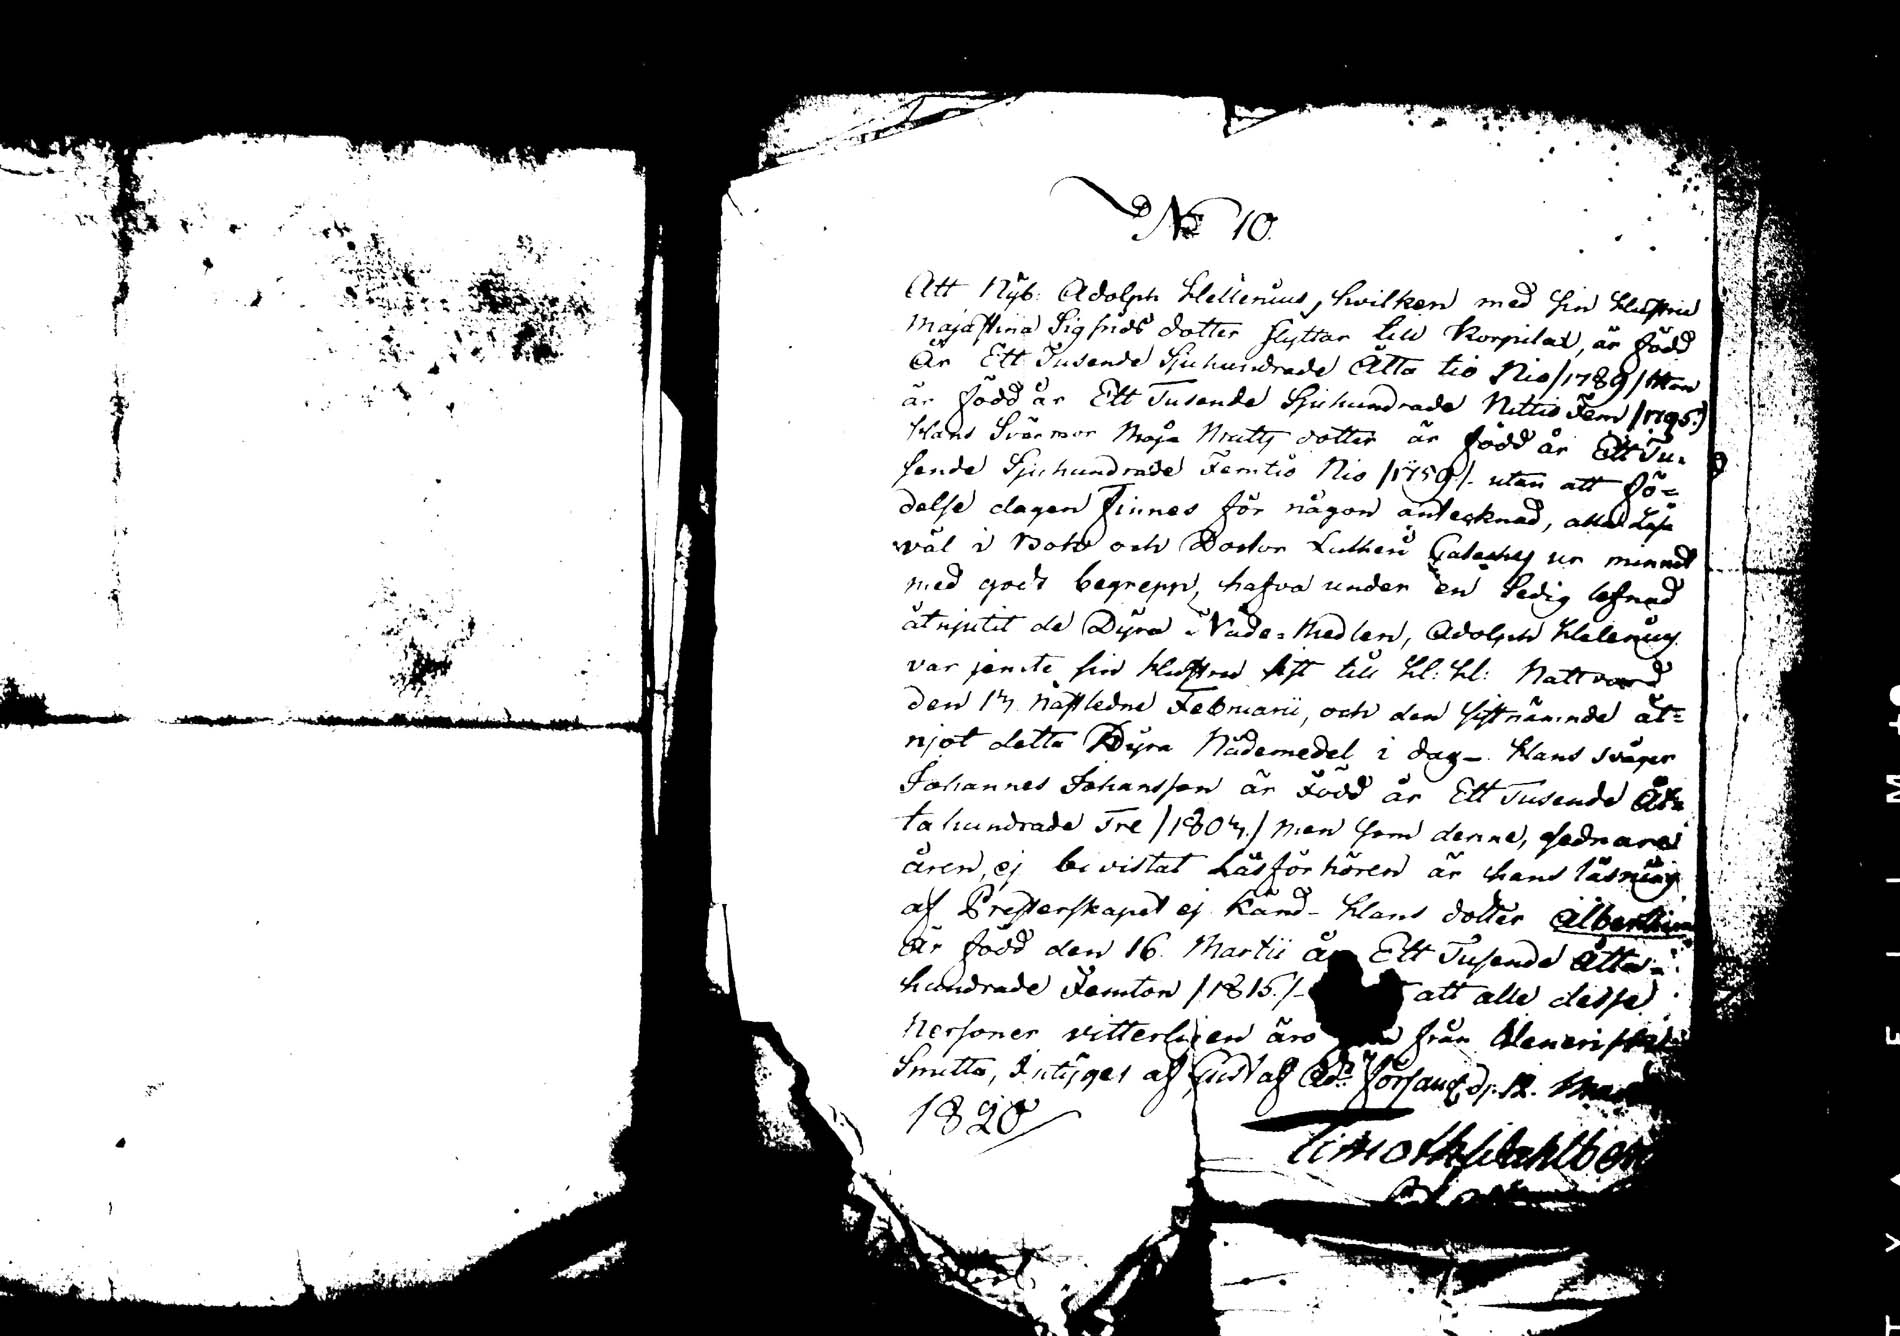 No 10.
Att Nÿb: Adolph Hellenius, hvilken med sin Hustru
Maja Stina Sigfrids dotter flyttar till Korpilax, är född
År Ett Tusende Sjuhundrade Åtta tio Nio /1789/ Hon
är född år Ett Tusende Sjuhundrade Nittio Fem /1795./
Hans Svärmor Maja Matts dotter är född år Ett Tu-
sende Sjuhundrade Femtio Nio /1759/- utan att fö-
delse dagen finnes för någon antecknad, alla Läsa
väl i Bok och Doctor Lutheri Cateches ur minnet
med godt begrepp, hafva under en Sedig lefnad
åtnjutit de Dÿra Nåde-Medlen, Adolph Helenius
var jemte sin Hustru sist till H: H: Nattvard
den 13 nästledne Februarii, och den sistnämnde åt-
njöt detta Dÿra Nådemedel i dag- Hans Svåger
Johannes Johansson är Född år Ett Tusende Åt-
ta hundrade Tre /1803./ men som denne, sednare
åren, ej bevistat Läsförhören är hans läsning
af Presterskapet ej känd- Hans dotter Albertina
är född den 16. Martii år Ett Tusende Åtta-
hundrade Femton /1815./- att alle desse
Personer vitterligen äro från Veneriska
Smitta, Intÿgas af Gustaf Ad: förs: d. 12. Mars
1820
Timoth Wahlberg